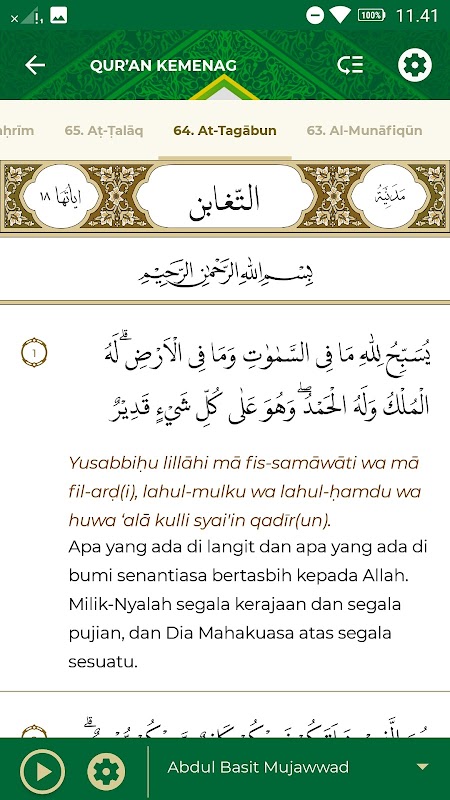 11.41
100%
QUR'AN KEMENAG
aḥrīm
65. Aṭ-Ṭalāq
64. At-Tagābun
63. Al-Munāfiqūn
مَدَنِيَّةٌ
التّغابن
اٰياتها ١٨
بِسْمِ اللّٰهِ الرَّحْمٰنِ الرَّحِيْمِ
١
يُسَبِّحُ لِلّٰهِ مَا فِى السَّمٰوٰتِ وَمَا فِى الْاَرْضِۚ لَهُ
الْمُلْكُ وَلَهُ الْحَمْدُۖ وَهُوَ عَلٰى كُلِّ شَيْءٍ قَدِيْرٌ
Yusabbiḥu lillāhi mā fis-samāwāti wa mā
fil-arḍ(i), lahul-mulku wa lahul-ḥamdu wa
huwa ‘alā kulli syai'in qadīr(un).
Apa yang ada di langit dan apa yang ada di
bumi senantiasa bertasbih kepada Allah.
Milik-Nyalah segala kerajaan dan segala
pujian, dan Dia Mahakuasa atas segala
sesuatu.
Abdul Basit Mujawwad